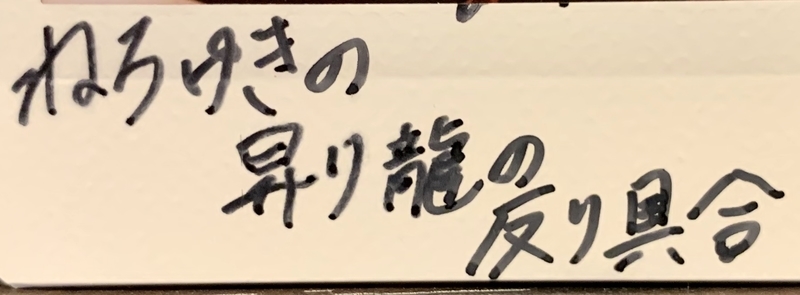 ねろゆきの
昇り龍の
反り具合